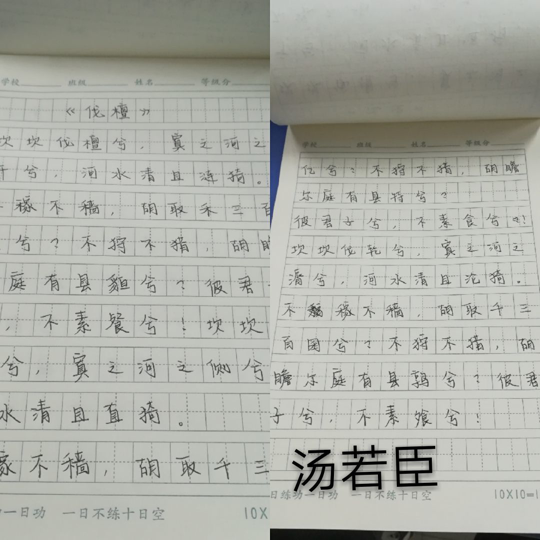 学校 班级 姓名 等级分
《伐檀》
坎坎伐檀兮，寘之河之
干兮，河水清且涟猗。
稼不穑，胡取禾三百
兮？不狩不猎，胡瞻
庭有县貆兮？彼君
，不素餐兮！坎坎
兮，寘之河之侧兮
水清且直猗。
稼不穑，胡取千三
一日功 一日不练十日空 10X
学校 班级 姓名 等级分
亿兮？不狩不猎，胡瞻
尔庭有县特兮？
彼君子兮，不素食兮！
坎坎伐轮兮，寘之河之
漘兮，河水清且沦猗。
不稼不穑，胡取千三
百囷兮？不狩不猎，胡
瞻尔庭有县鹑兮？彼君
子兮，不素飧兮！
汤若臣
日练一日功 一日不练十日空 10X10=1